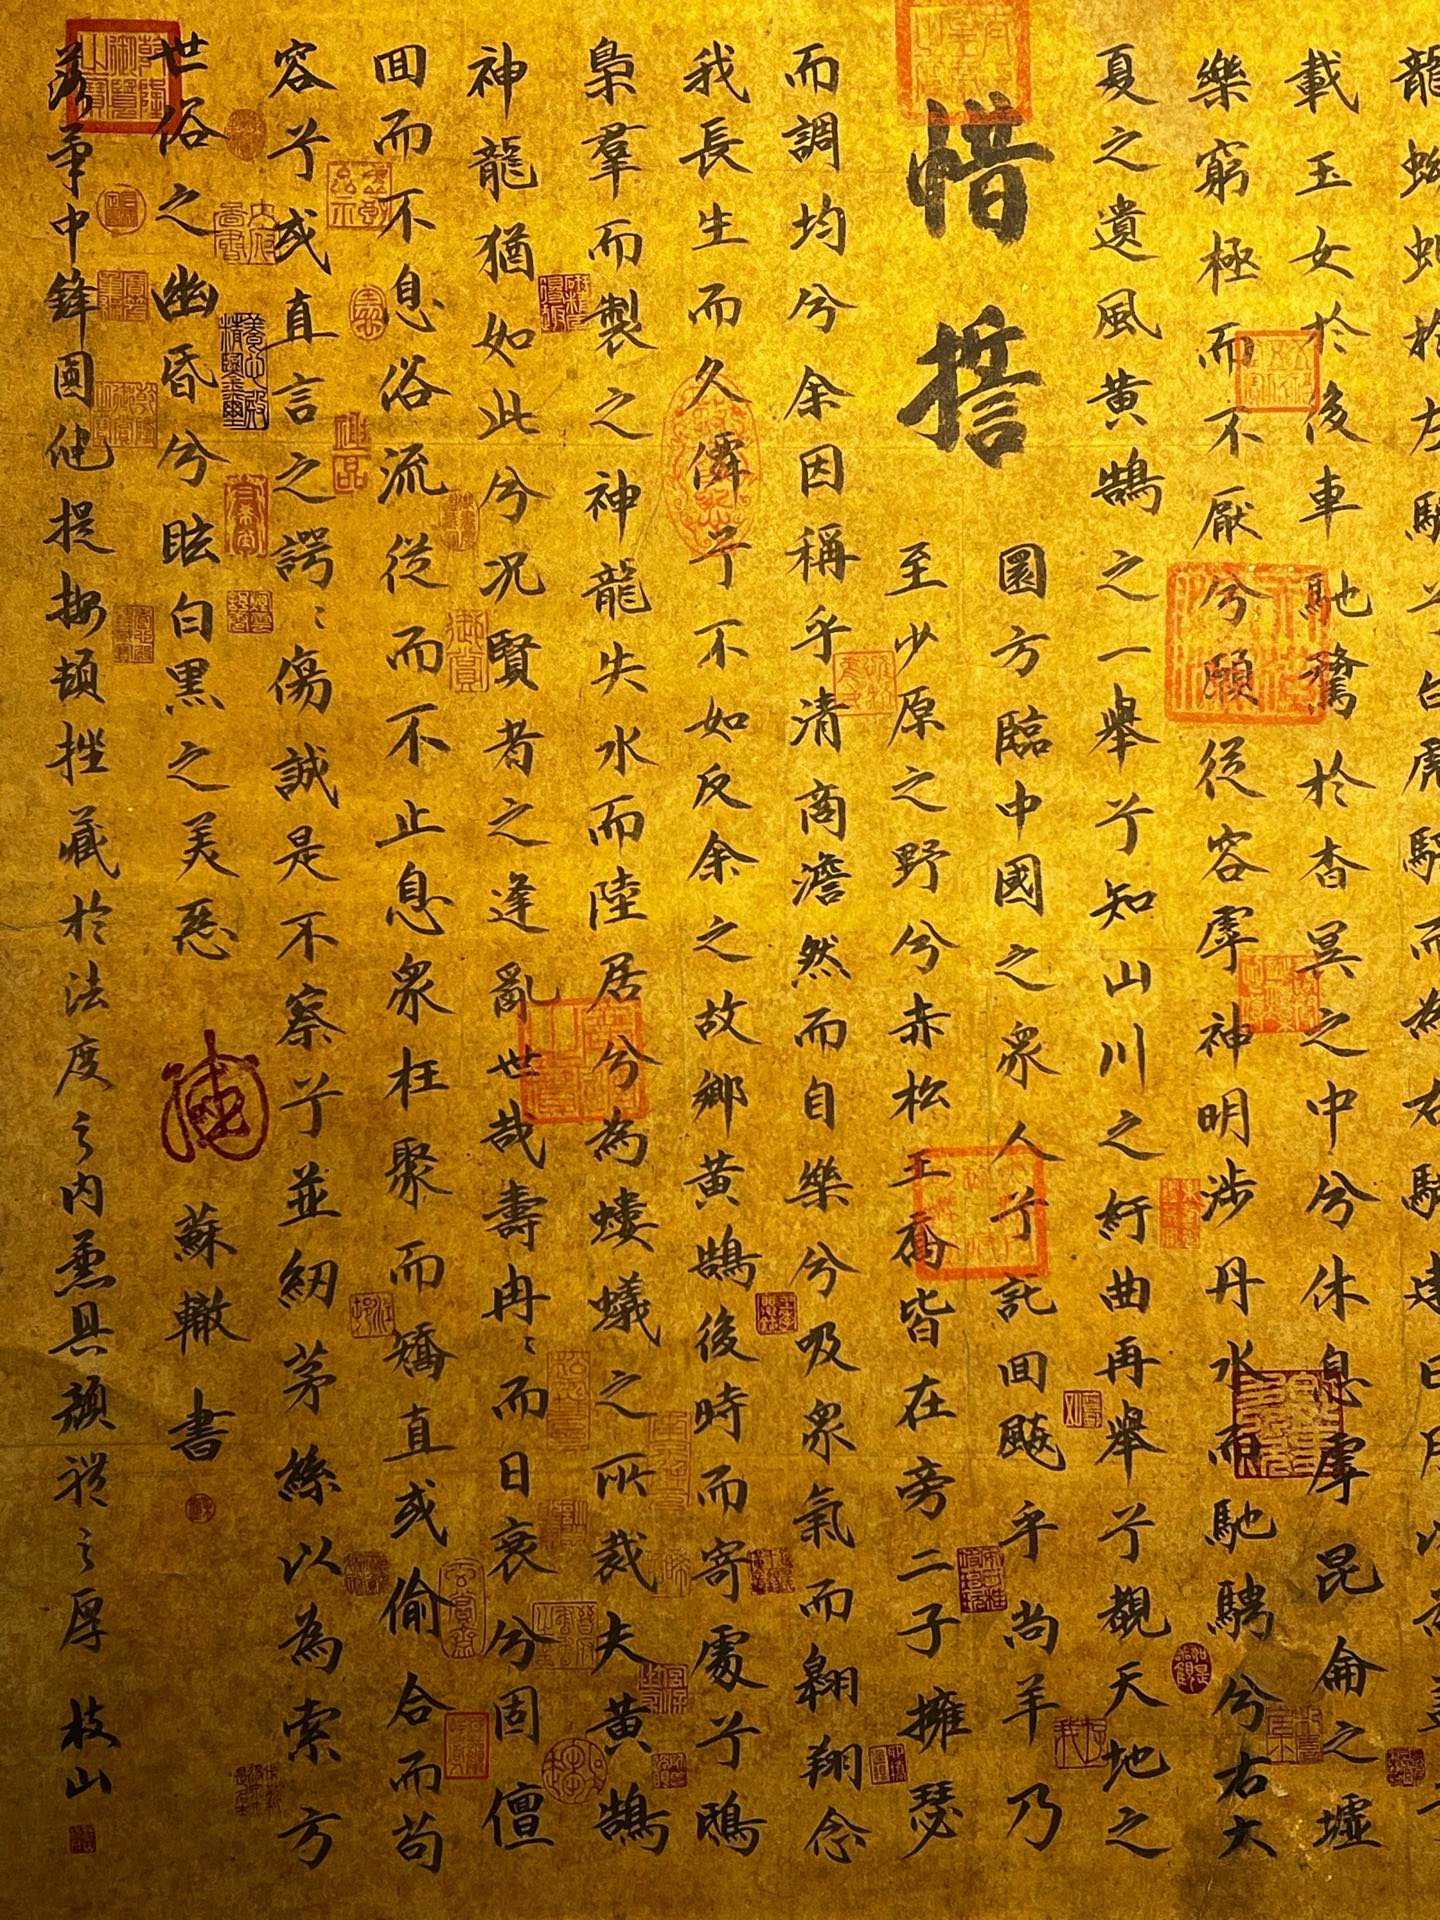 龍蚴虬於左驂兮白虎騁而為右騑建日月以為蓋兮
載玉女於後車馳騖於杳冥之中兮休息虖昆侖之墟
樂窮極而不厭兮願從容虖神明涉丹水而馳騁兮右大
夏之遺風黄鵠之一舉兮知山川之紆曲再舉兮覩天地之
惜誓
圜方臨中國之衆人兮託回飈乎尚羊乃
至少原之野兮赤松王喬皆在旁二子擁瑟
而調均兮余因稱乎清商澹然而自樂兮吸衆氣而翱翔念
我長生而久僊兮不如反余之故鄉黄鵠後時而寄處兮鴟
梟羣而製之神龍失水而陸居兮為螻蟻之所裁夫黄鵠
神龍猶如此兮況賢者之逢亂世哉壽冉〻而日衰兮固儃
回而不息俗流從而不止息衆枉聚而矯直或偷合而苟
容兮或直言之諤〻傷誠是不察兮並紉茅絲以為索方
世俗之幽昏兮眩白黑之美惡 蘇轍書
落筆中鋒圓健提按頓挫藏於法度之内兼具顔褚之厚 枝山